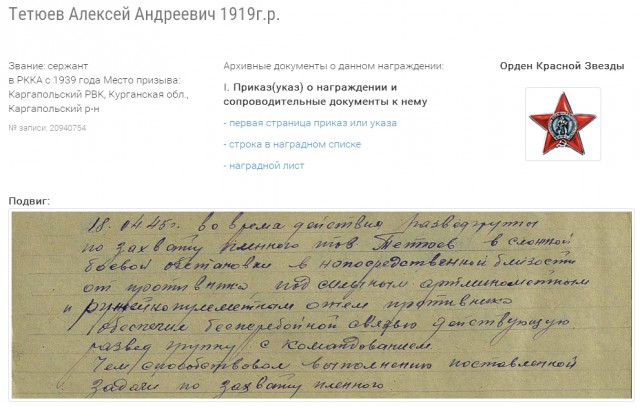 Тетюев Алексей Андреевич 1919г.р.
Звание: сержант
в РККА с 1939 года Место призыва:
Каргапольский РВК, Курганская обл.,
Каргапольский р-н
№ записи: 20940754
Архивные документы о данном награждении:
I. Приказ(указ) о награждении и
сопроводительные документы к нему
- первая страница приказ или указа
- строка в наградном списке
- наградной лист
Орден Красной Звезды
Подвиг:
18.04.45г. во время действия разведгруппы
по захвату пленного тов Тетюев в сложной
боевой обстановке в непосредственной близости
от противника под сильным артминометным
и ружейнопулеметным огнем противника
обеспечил бесперебойной связью действующую
развед группу с командованием.
Чем способствовал выполнению поставленной
задачи по захвату пленного.